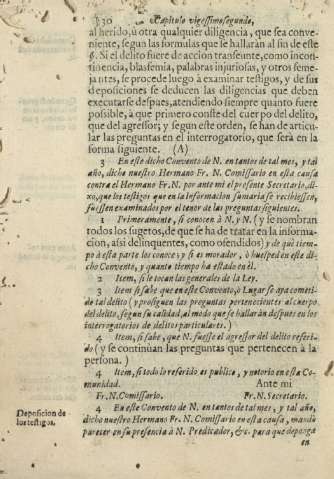 130 Capitulo vigessimosegundo,
al herido, ù otra qualquier diligencia, que sea conve-
niente, segun las formulas que le hallarán al fin de este
§. Si el delito fuere de accion transeunte, como incon-
tinencia, blasfemia, palabras injuriosas, y otros seme-
jantes, se procede luego à examinar testigos, y de sus
deposiciones se deducen las diligencias que deben
executarse despues, atendiendo siempre quanto fuere
possible, à que primero conste del cuerpo del delito,
que del agressor; y segun este orden, se han de articu-
lar las preguntas en el interrogatorio, que será en la
forma siguiente. (A)
3 En este dicho Convento de N. en tantos de tal mes, y tal
año, dicho nuestro Hermano Fr. N. Comissario en esta causa
contra el Hermano Fr. N. por ante mi el presente Secretario, di-
xo, que los testigos que en la informacion sumaria se recibiessen,
fuessen examinados por el tenor de las preguntas siguientes.
1 Primeramente, si conocen à N. y N. (y se nombran
todos los sugetos, de que se ha de tratar en la informa-
cion, assi delinquentes, como ofendidos) y de què tiem-
po à esta parte los conoce; y si es morador, ò huesped en este di-
cho Convento, y quanto tiempo há estado en él.
2 Item, si le tocan las generales de la Ley.
3 Item si sabe que en este Convento, ò Lugar se aya cometi-
do tal delito (y prosiguen las preguntas pertenecientes al cuerpo
del delito, segun su calidad, al modo que se hallarán despues en los
interrogatorios de delitos particulares.)
4 Item, si sabe, que N. fuesse el agressor del delito referi-
do (y se continùan las preguntas que pertenecen à la
persona.)
4 Item, si todo lo referido es publico, y notorio en esta Co-
munidad. Ante mi
Fr. N. Comissario. Fr. N. Secretario.
Deposicion de
los testigos.
4 En este Convento de N. en tantos de tal mes, y tal año,
dicho nuestro Hermano Fr. N. Comissario en esta causa, mandò
parecer en su presencia à N. Predicador, &c. para que deponga
en